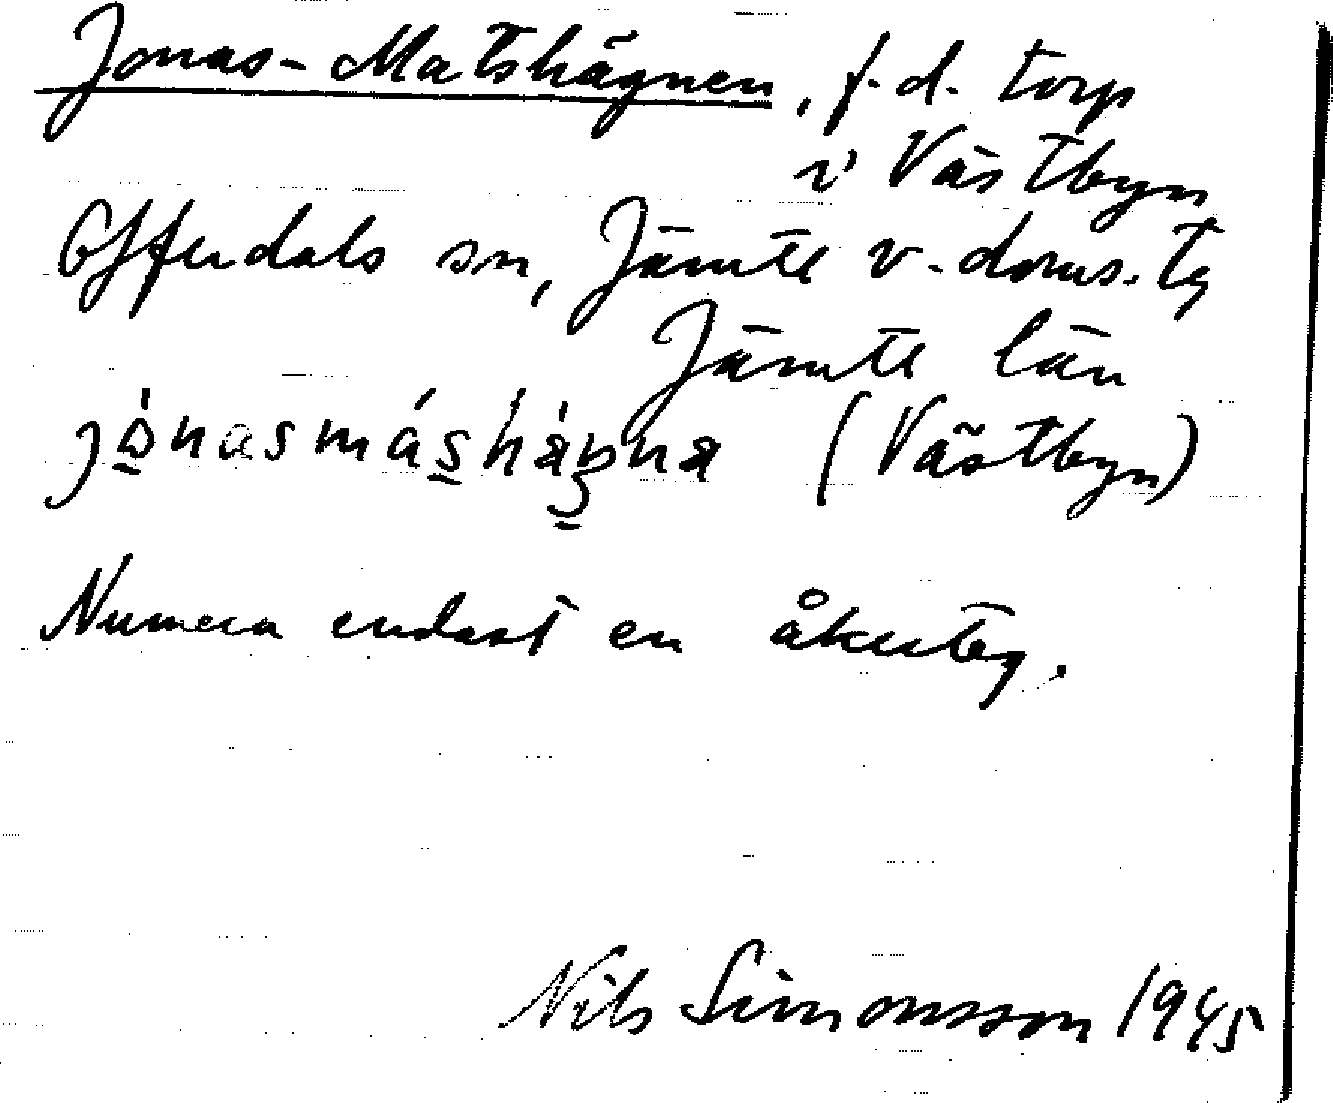 Jonas-Matshägnen, f.d. torp
i Västbyn
Offerdals sn, Jämte v. doms. tg
Jämte län
(Västbyn)
Numera endast en åkerteg.
Nils Simonsson 1945